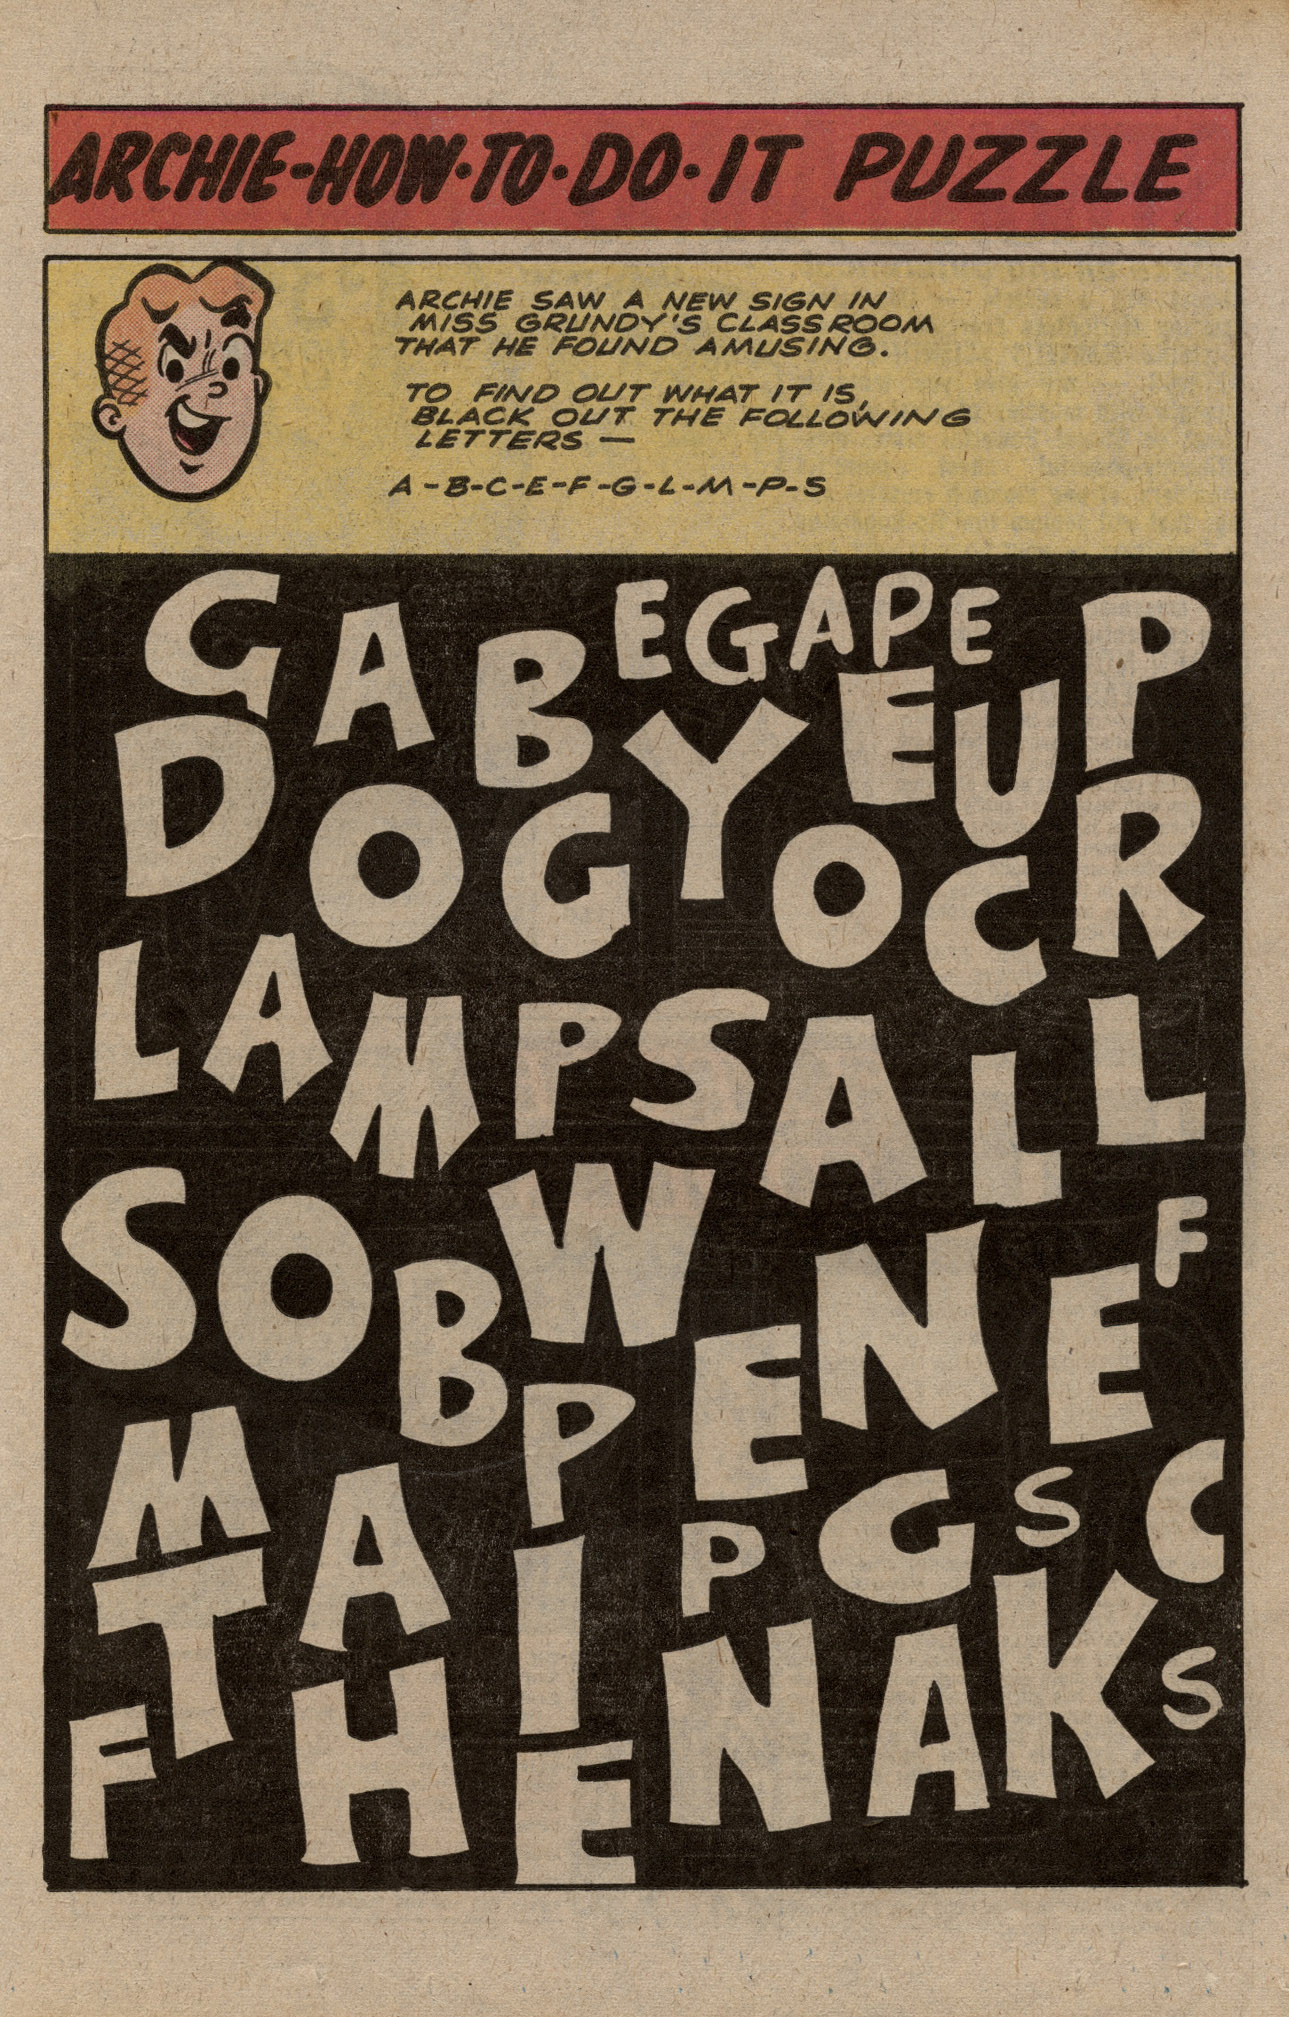 ARCHIE-HOW·TO·DO·IT PUZZLE
ARCHIE SAW A NEW SIGN IN
MISS GRUNDY'S CLASSROOM
THAT HE FOUND AMUSING.
TO FIND OUT WHAT IT IS,
BLACK OUT THE FOLLOWING
LETTERS —
A-B-C-E-F-G-L-M-P-S
G A B E G A P E P
D O G Y E U R
O C
L A M P S A L L
S O B W N E F
M A P E G S C
T I P N A K S
F H E